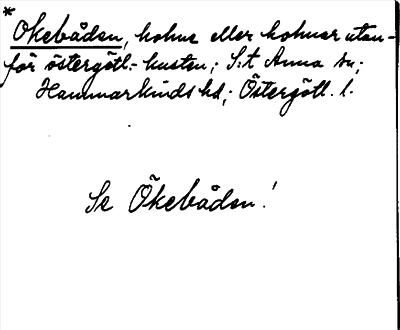 * Okebåden, holme eller holmar utan-
för östergötl.-kusten; S:t Anna sn;
Hammarkinds hd; Östergötl. l.
Se Ökebåden!